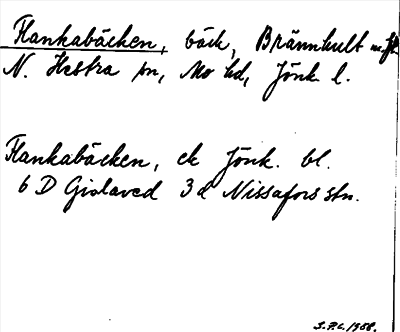 Flankabäcken, bäck, Brännhult m. fl.
N. Hestra sn, Mo hd, Jönk. l.
Flankabäcken, ek Jönk. bl.
6 D Gislaved 3 d Nissafors stn.
1958.